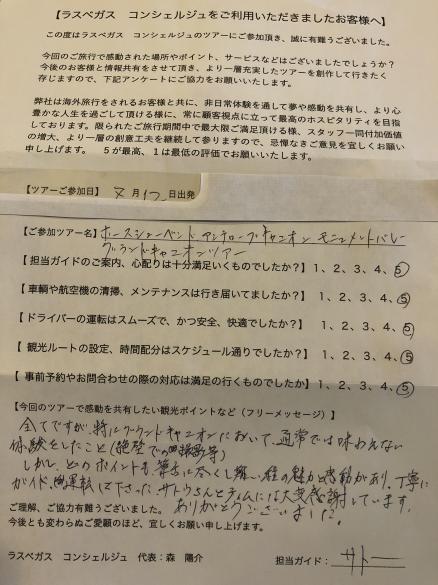 【ラスベガス　コンシェルジュをご利用いただきましたお客様へ】
この度はラスベガス　コンシェルジュのツアーにご参加頂き、誠に有難うございました。
今回のご旅行で感動された場所やポイント、サービスなどはございましたでしょうか？
今後のお客様と情報共有をさせて頂き、より一層充実したツアーを創作して行きたく
存じますので、下記アンケートにご協力をお願いいたします。
弊社は海外旅行をされるお客様と共に、非日常体験を通して夢や感動を共有し、より心
豊かな人生を過ごして頂ける様に、常に顧客視点に立って最高のホスピタリティを目指
しております。限られたご旅行期間中で最大限ご満足頂ける様、スタッフ一同付加価値
の増大、より一層の創意工夫を継続して参りますので、忌憚なきご意見を宜しくお願い
申し上げます。　５が最高、１は最低の評価でお願いいたします。
【ツアーご参加日】　月　日出発
【ご参加ツアー名】ホースシューベント、アンテロープキャニオン モニュメントバレー
グランドキャニオンツアー
【担当ガイドのご案内、心配りは十分満足いくものでしたか？】１、２、３、４、５
【車輌や航空機の清掃、メンテナンスは行き届いてましたか？】１、２、３、４、５
【ドライバーの運転はスムーズで、かつ安全、快適でしたか？】１、２、３、４、５
【観光ルートの設定、時間配分はスケジュール通りでしたか？】１、２、３、４、５
【事前予約やお問合わせの際の対応は満足の行くものでしたか】１、２、３、４、５
【今回のツアーで感動を共有したい観光ポイントなど（フリーメッセージ）】
全てですが、特にグランドキャニオンにおいて、通常では味わえない
体験をしたこと（絶壁での撮影等）
しかし、どのポイントも筆舌に尽くし難い程の魅力と感動があり、丁寧に
ガイド、運転して下さったサトウさんとチームには大変感謝しています。
ありがとうございました。
ご理解、ご協力有難うございました。
今後とも変わらぬご愛顧のほど、宜しくお願い申し上げます。
ラスベガス　コンシェルジュ　代表：森　陽介
担当ガイド：サトー